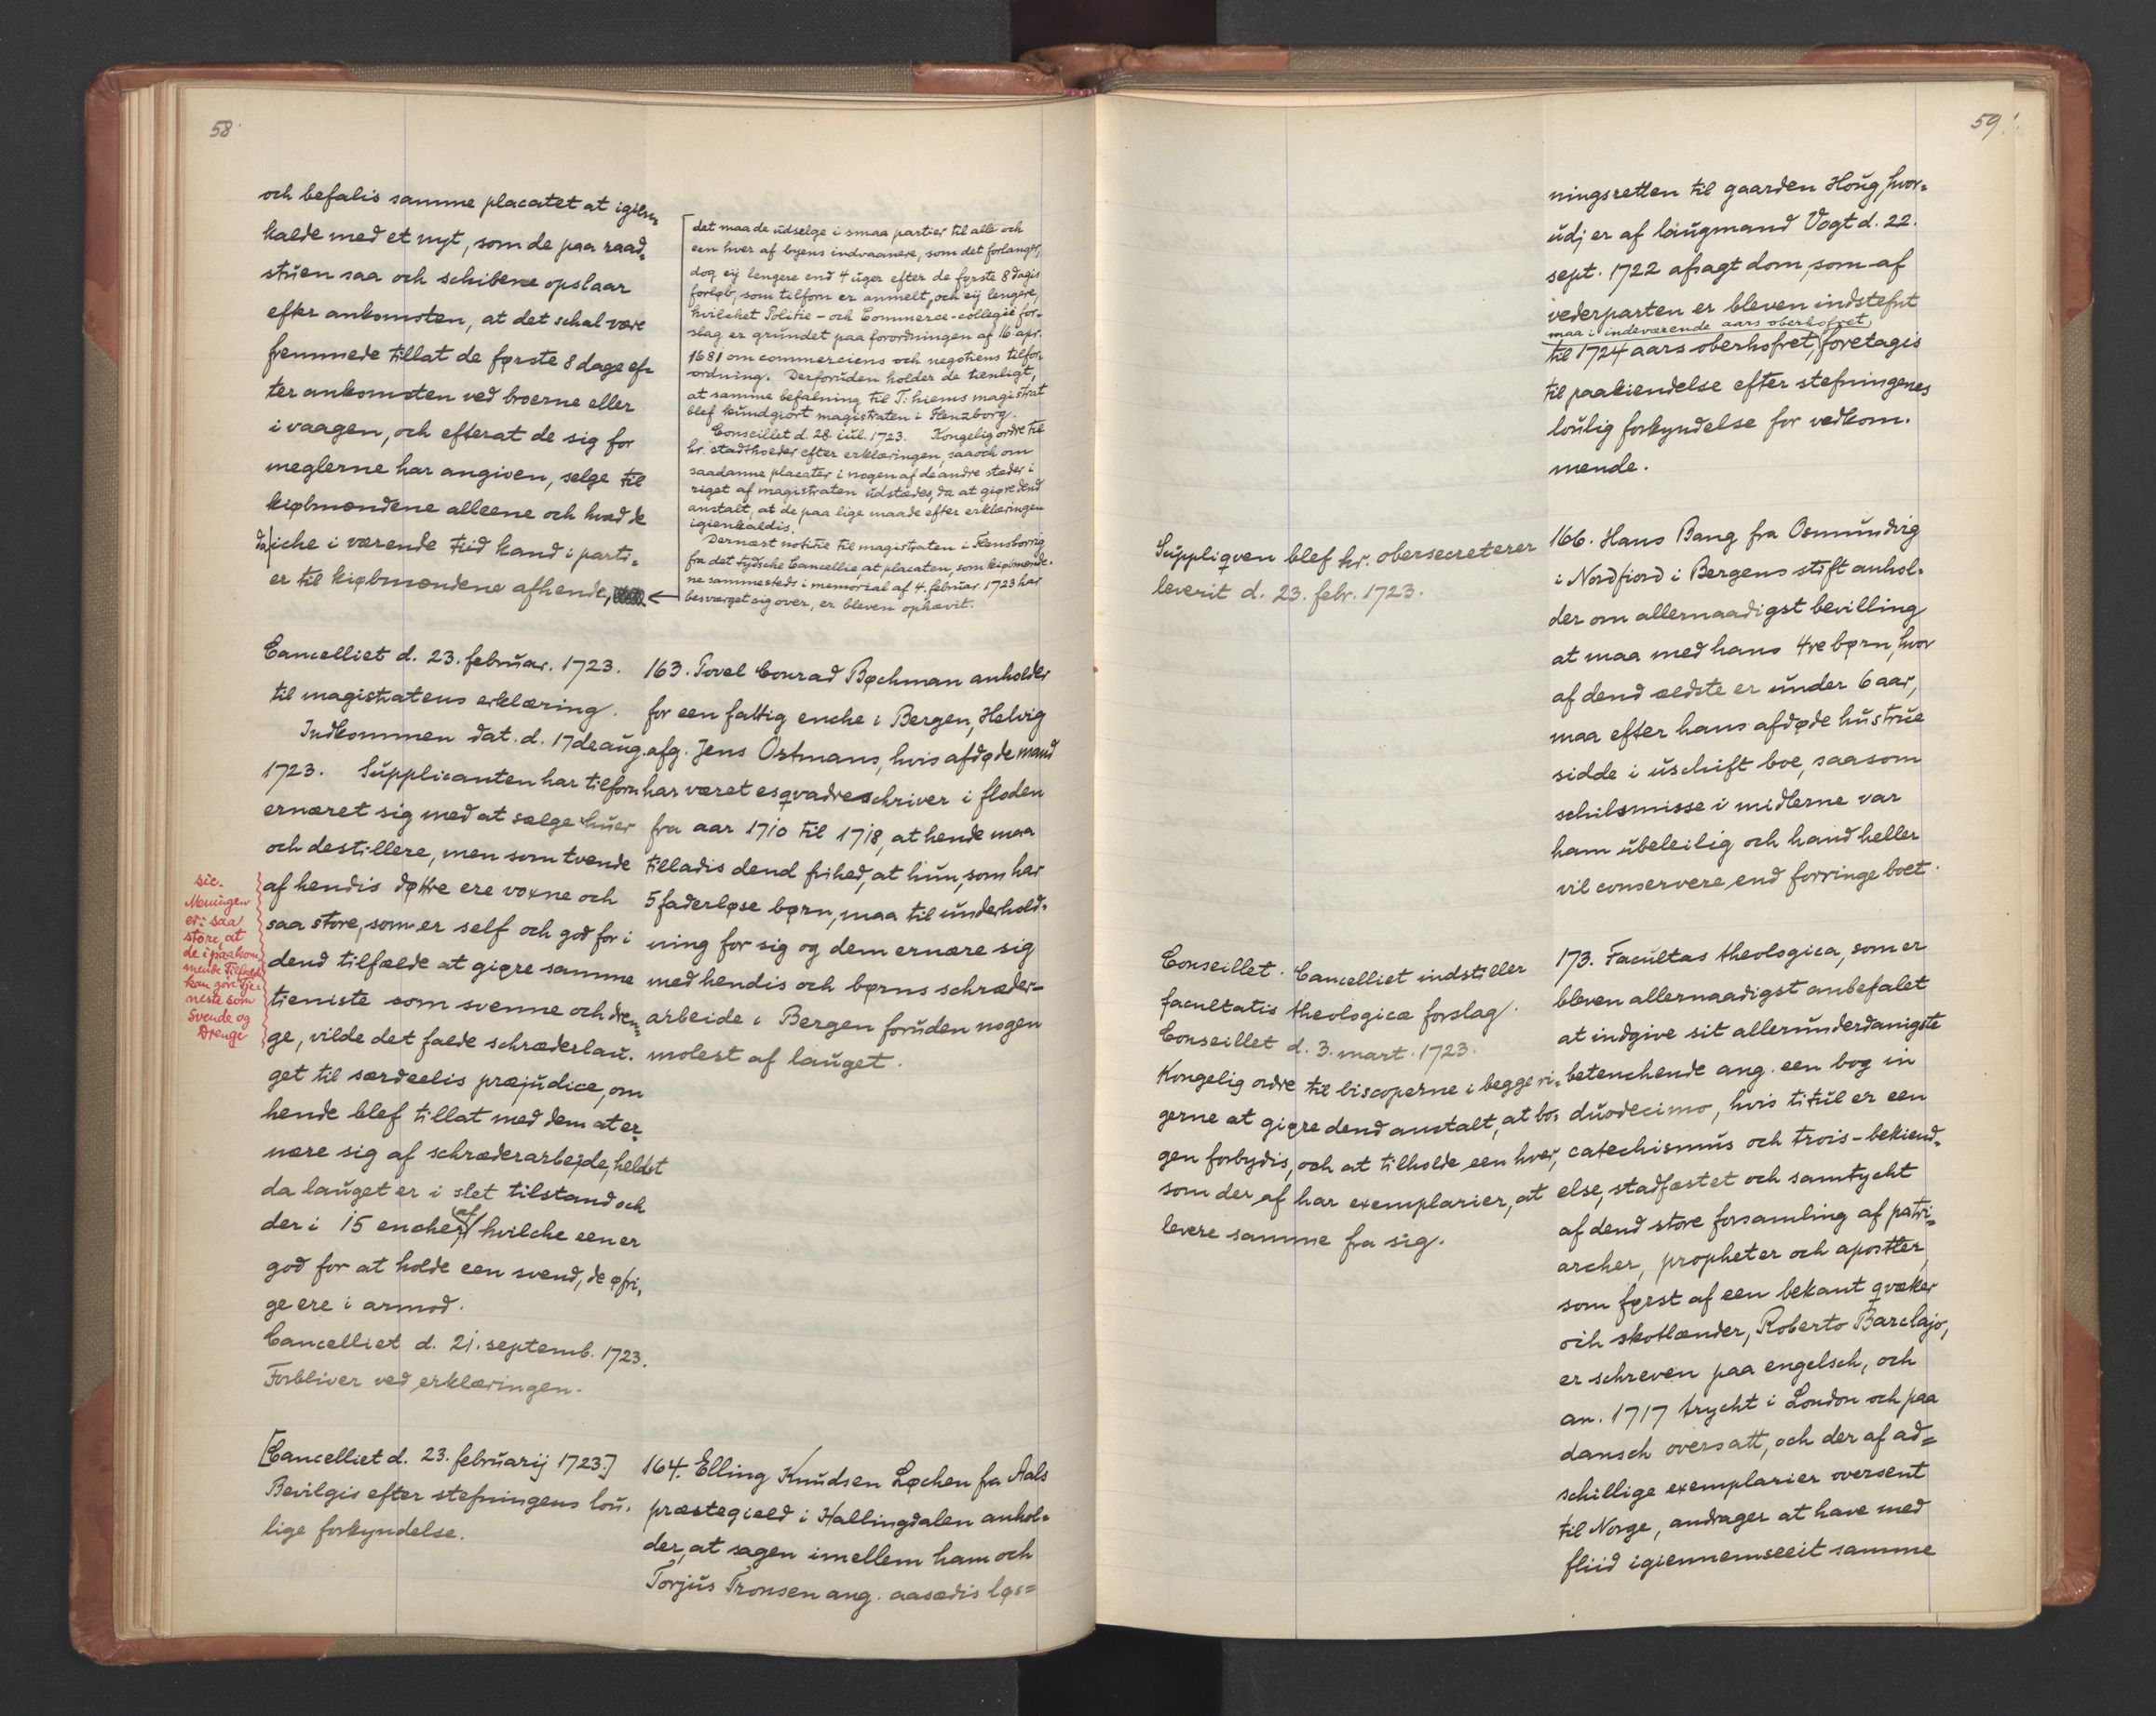 58
och befalis samme placatet at igien=
kalde med et nyt, som de paa raad=
stuen saa och schibene opslaar
efter ankomsten, at det schal være
fremmede tillat de første 8 dage ef=
ter ankomsten ved broerne eller
i vaagen, och efterat de sig for
meglerne har angiven, selge til
kiøbmændene alleene och hvad de
da iche i værende tiid kand i parti=
er til kiøbmændene afhende,
det maa de udselge i smaa partier til alle och
een hver af byens indvaanere, som det forlanger,
dog eij lengere end 4 uger efter de første 8 dagis
forløb, som tilforn er anmelt, och eij lengere,
hvilchet Politie- och Commerce-collegii for=
slag er grundet paa forordningen af 16 apr.
1681 om commerciens och negotiens tilfor=
ordning. Derforuden holder de tienligt,
at samme befalning til T:hiems magistrat
blef kundgiort magistraten i Flenzborg.
Conseillet d. 28 iul. 1723. Kongelig ordre til
hr. stadtholder efter erklæringen, saa och om
saadanne placater i nogen af de andre stæder i
riget af magistraten udstædes, da at giøre dend
anstalt, at de paa lige maade efter erklæringen
igienkaldis.
Dernæst notitie til magistraten i Flensborrig
fra det tydsche Cancellie, at placaten, som kiøbmænde=
ne sammesteds i memorial af 4. februar. 1723 har
besværget sig over, er bleven ophævit.
Cancelliet d. 23. februar. 1723.
til magistratens erklæring.
Indkommen dat. d. 17de aug.
1723. Supplicanten har tilforn
ernæret sig med at sælge huer
och destillere, men som tvende
af hendis døttre ere voxne och
saa store, som er self och god for i
dend tilfælde at giøre samme
tieniste som svenne och dren=
ge, vilde det falde schræderlau=
get til særdeelis præjudice, om
hende blef tillat med dem at er=
nære sig af schræderarbejde, heldst
da lauget er i slet tilstand och
der i 15 encher, af hvilche een er
god for at holde een svend, de øfri=
ge ere i armod.
Cancelliet d. 21. septemb. 1723.
Forbliver ved erklæringen.
sic.
Meningen
er: saa
store, at
de i paakom
mende Tilfælde
kan gøre Tje=
neste som
Svende og
Drenge
163. Povel Conrad Bøchman anholder
for een fattig enche i Bergen, Helvig
afg. Jens Ostmans, hvis afdøde mand
har været esqvadreschriver i floden
fra aar 1710 til 1718, at hende maa
tilladis dend frihed, at hun, som har
5 faderløse børn, maa til underhold=
ning for sig og dem ernære sig
med hendis och børns schræder=
arbeide i Bergen foruden nogen
molest af lauget.
[Cancelliet d. 23. februarij 1723.]
Bevilgis efter stefningens lou=
lige forkyndelse.
164. Elling Knudsen Løchen fra Aals
præstegield i Hallingdalen anhol=
der, at sagen imellem ham och
Torjus Tronsen ang. aasædis løs=
59
ningsretten til gaarden Houg, hvor=
udj er af laugmand Vogt d. 22.
sept. 1722 afsagt dom, som af
vederparten er bleven indstefnt
maa i indeværende aars oberhofret
til 1724 aars oberhofret, foretagis
til paakiendelse efter stefningenes
loulig forkyndelse for vedkom=
mende.
Suppliqven blef hr. obersecreterer
leverit d. 23. febr. 1723.
166. Hans Bang fra Osmundvig
i Nordfiord i Bergens stift anhol=
der om allernaadigst bevilling
at maa med hans 4re børn, hvor
af dend ældste er under 6 aar,
maa efter hans afdøde hustrue
sidde i uschift boe, saasom
schilsmisse i midlerne var
ham ubeleilig och hand heller
vil conservere end forringe boet.
Conseillet. Cancelliet indstiller
facultatis theologicæ forslag.
Conseillet d. 3. mart. 1723.
Kongelig ordre til biscoperne i begge ri=
gerne at giøre dend anstalt, at bo=
gen forbydis, och at tilholde een hver,
som der af har exemplarier, at
levere samme fra sig.
173. Facultas theologica, som er
bleven allernaadigst anbefalet
at indgive sit allerunderdanigste
betenchende ang. een bog in
duodecimo, hvis titul er een
catechismus och trois-bekiend=
else, stadfæstet och samtycht
af dend store forsamling af patri=
archer, propheter och apostler,
som først af een bekant qvæker
och skotlænder, Roberto Barclajo,
er schreven paa engelsch, och
an. 1717 trycht i London och paa
dansch oversatt, och der af ad=
schillige exemplarier oversent
til Norge, andrager at have med
fliid igiennemseeit samme